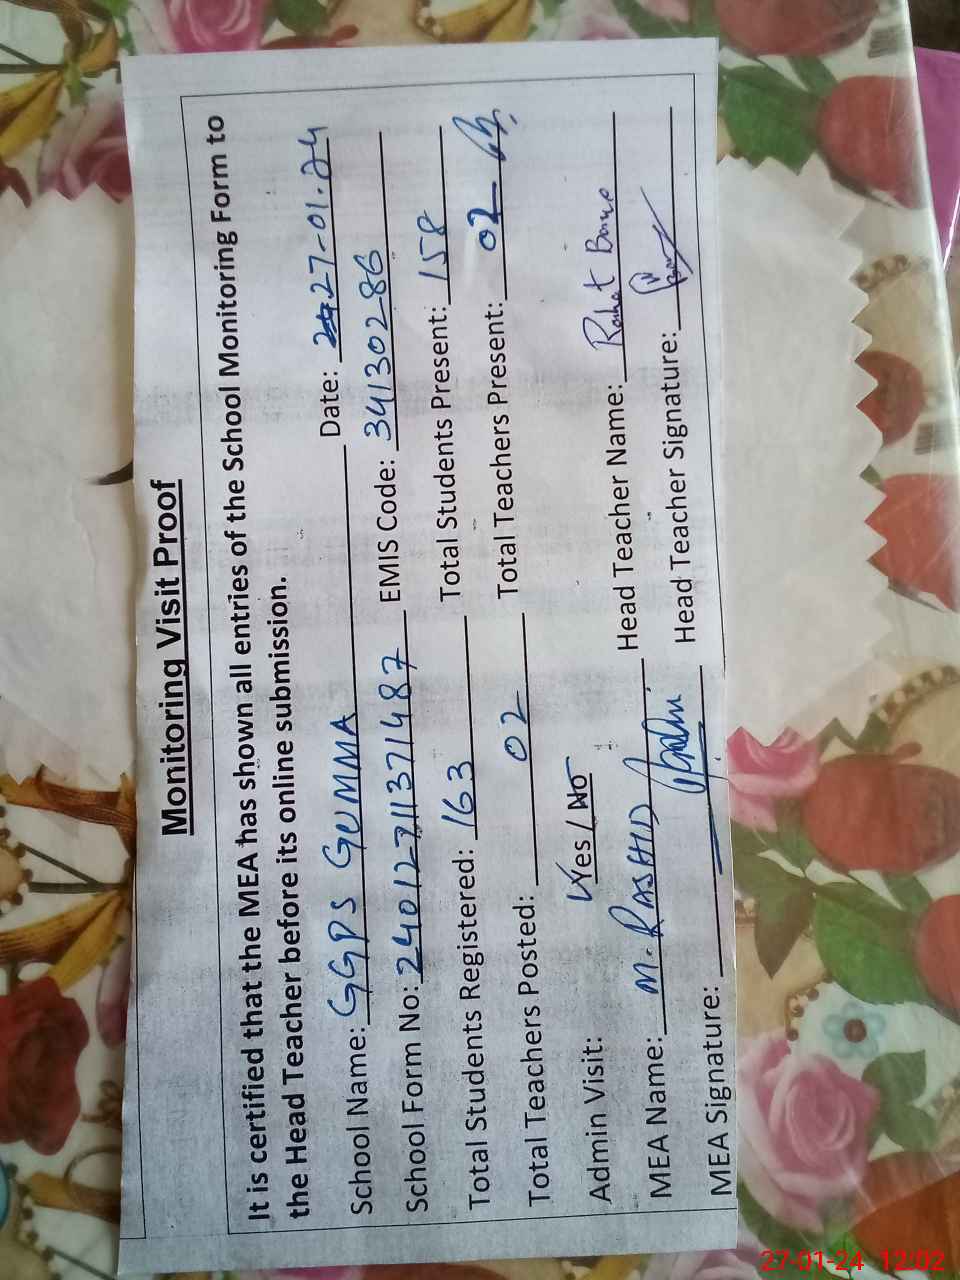 Monitoring Visit Proof
It is certified that the MEA has shown all entries of the School Monitoring Form to
the Head Teacher before its online submission.
School Name: GGPS GUMMA Date: 27-01-24
School Form No: 2401271371487 EMIS Code: 34130286
Total Students Registered: 163 Total Students Present: 158
Total Teachers Posted: 02 Total Teachers Present: 02
Admin Visit: Yes / No
MEA Name: M. RASHID Head Teacher Name: Rahat Bano
MEA Signature: Head Teacher Signature:
27-01-24 12:02